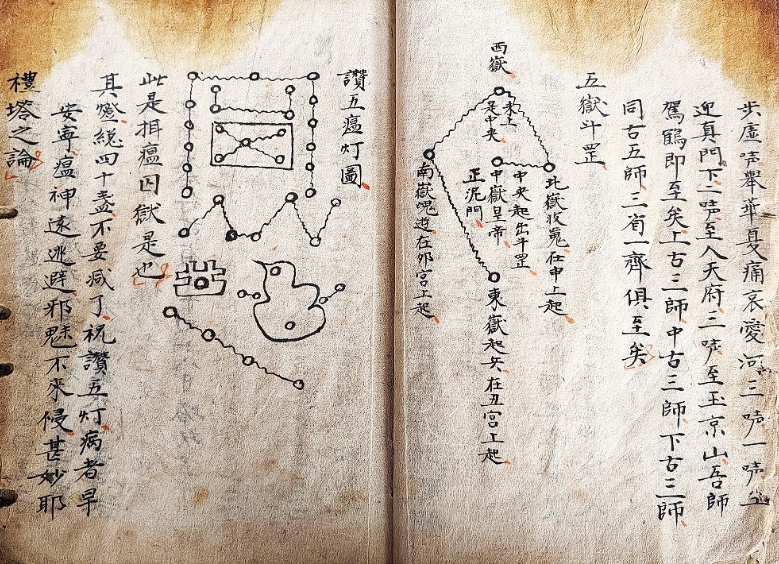 步虛声舉華夏痛哀愛河三声一声至
迎真門下二声至入天府三声至玉京山吾師
駕鶴即至矣上古三師中古三師下古三師
同古五師三省一齊俱至矣
五嶽斗罡
西嶽
水上
是中央
北嶽收嵬在申上起
中央起出斗罡
中嶽皇帝
正泥門
南嶽嵬逰在卯宮上起
東嶽起矢在丑宮上起
讚五瘟灯圖
此是揖瘟囚獄是也
其燈総四十盞不要减了祝讚五灯病者早
安寧瘟神速逃避邪魅不來侵甚妙耶
樓塔之論